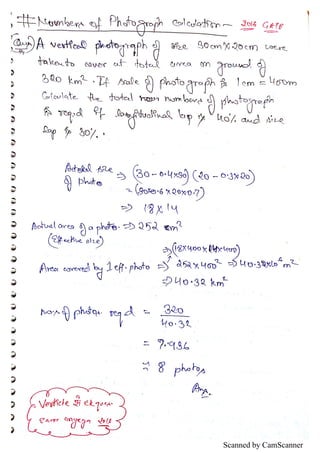 # Noumbers of Photograph Calculation - 2016 GATE
Ques) A vertical photograph of size 30cm×20cm were
taken to cover at total area on ground of
320 km². If scale of photograph is 1cm = 400m
Calculate the total numbers of photograph
is req.d if longitudinal lap is 40% and side
lap is 30%.
Actual size of photo ⇒ (30-0.4×30) (20-0.3×20)
= (30×0.6×20×0.7)
⇒ 18×14
Actual area of a photo ⇒ 252 cm²
(Effective size)
⇒ (18×400×14×400)
Area covered by 1 eff. photo ⇒ 252×400² ⇒ 40.32×10⁶m²
⇒ 40.32 km²
no. of photos req.d = 320
40.32
= 7.936
≈ 8 photos
Ans.
Verticle से
2018
Scanned by CamScanner